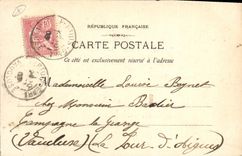 RÉPUBLIQUE FRANÇAISE
CARTE POSTALE
Ce côté est exclusivement réservé à l'adresse
Mademoiselle Louise Beynet
chez Monsieur
Campagne la Grange
(Vaucluse) La Tour d'Aigues